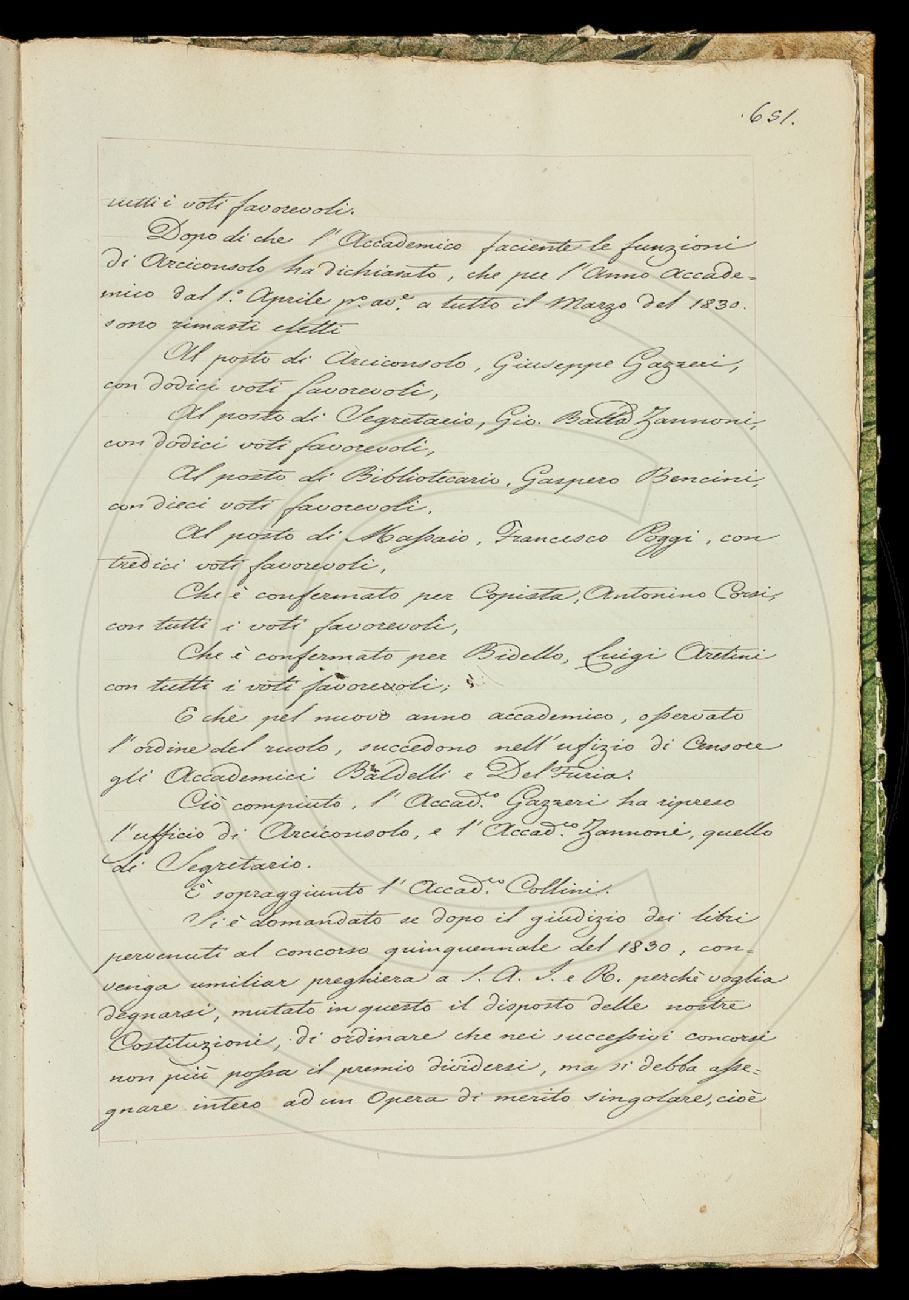 651.
tutti i voti favorevoli.
Dopo di che l'Accademico faciente le funzioni
di Arciconsolo ha dichiarato, che per l'Anno accade=
mico dal 1.° Aprile p.° av.e a tutto il Marzo del 1830.
sono rimasti eletti
Al posto di Arciconsolo, Giuseppe Gazzeri,
con dodici voti favorevoli,
Al posto di Segretario, Gio. Batta Zannoni,
con dodici voti favorevoli,
Al posto di Bibliotecario, Gaspero Bencini,
con dieci voti favorevoli,
Al posto di Massaio, Francesco Poggi, con
tredici voti favorevoli,
Che è confermato per Copista, Antonino Corsi,
con tutti i voti favorevoli,
Che è confermato per Bidello, Luigi Aretini
con tutti i voti favorevoli;
E che pel nuovo anno accademico, osservato
l'ordine del ruolo, succedono nell'ufizio di Censore
gli Accademici Baldelli e Del Furia.
Ciò compiuto, l'Accad.co Gazzeri ha ripreso
l'ufficio di Arciconsolo, e l'Accad.co Zannoni, quello
di Segretario.
È sopraggiunto l'Accad.co Collini.
Si è domandato se dopo il giudizio dei libri
pervenuti al concorso quinquennale del 1830, con=
venga umiliar preghiera a S. A. I. e R. perchè voglia
degnarsi, mutato in questo il disposto delle nostre
Costituzioni, di ordinare che nei successivi concorsi
non più possa il premio dividersi, ma si debba asse=
gnare intero ad un Opera di merito singolare, cioè